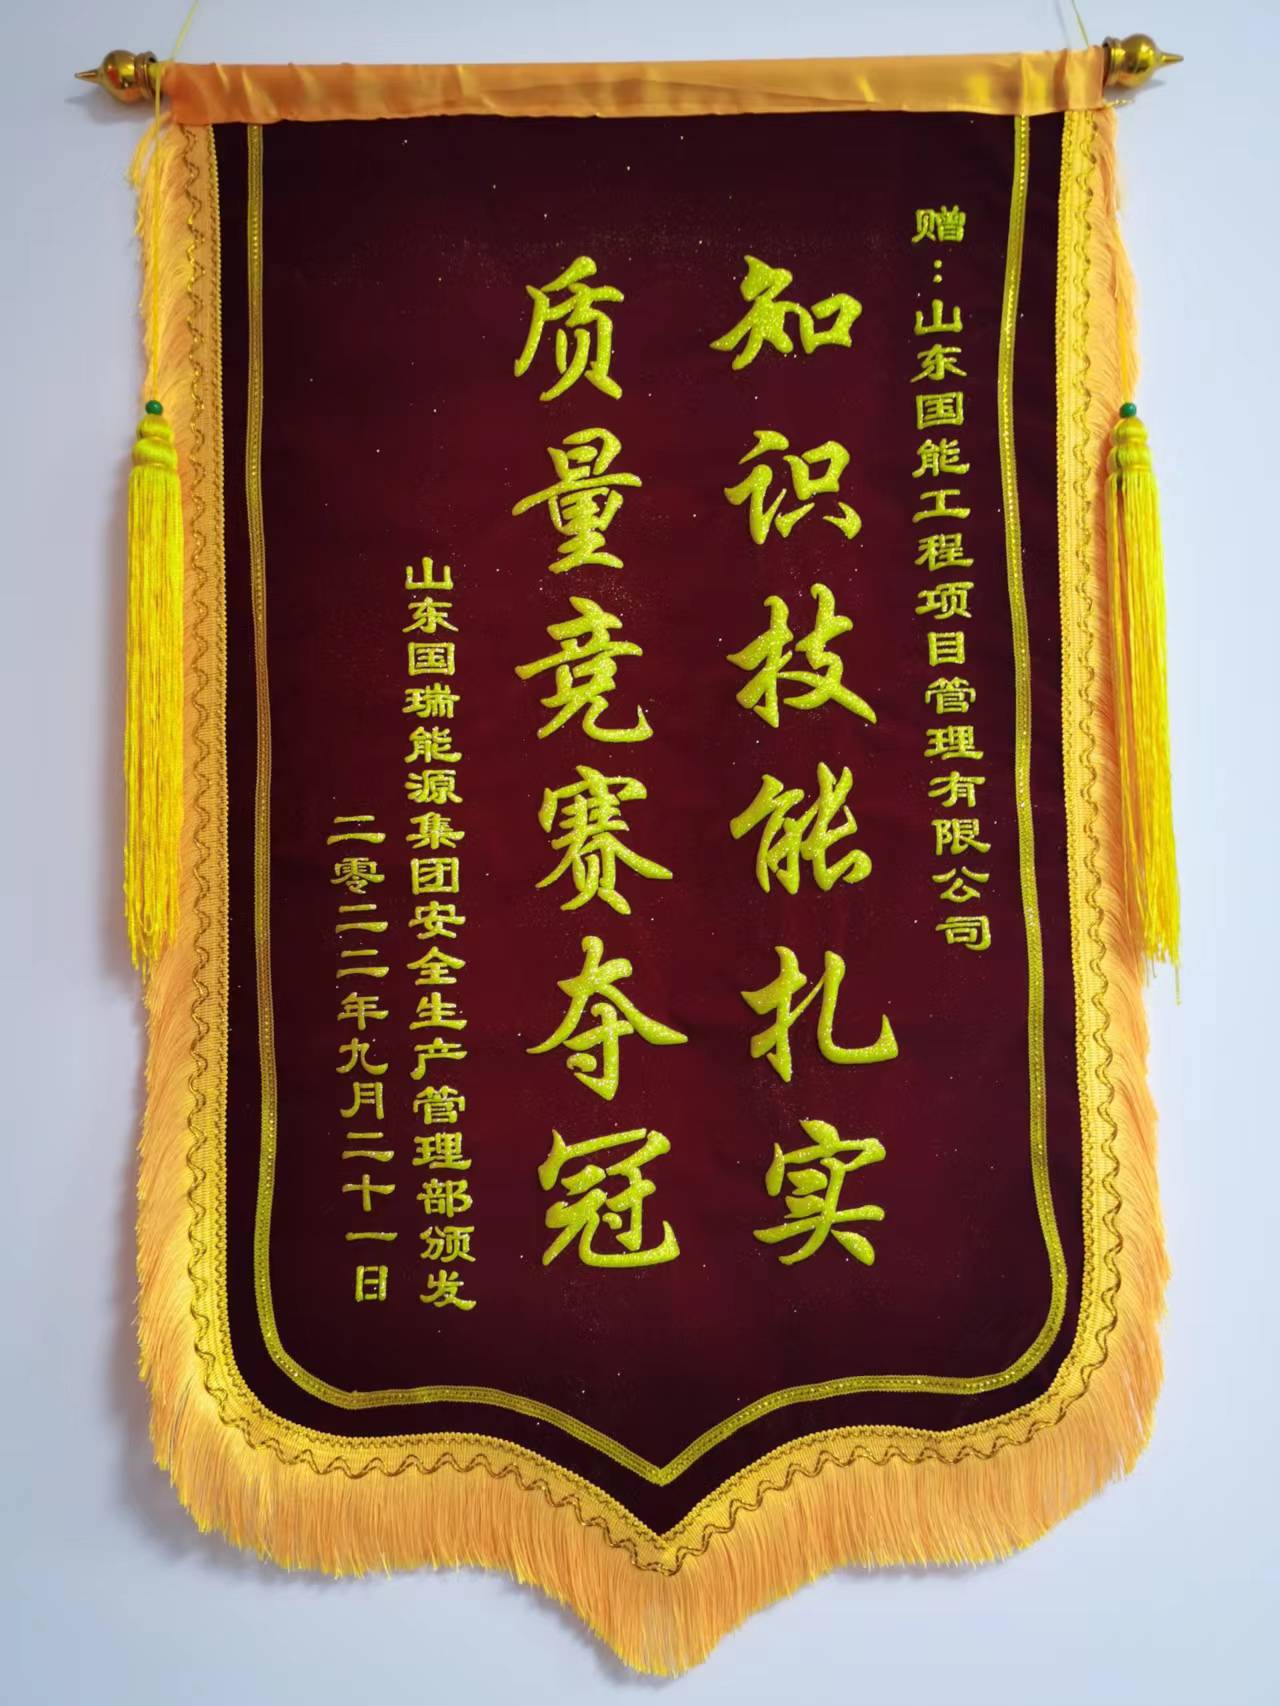 赠：山东国能工程项目管理有限公司
知识技能扎实
质量竞赛夺冠
山东国瑞能源集团安全生产管理部颁发
二零二二年九月二十一日